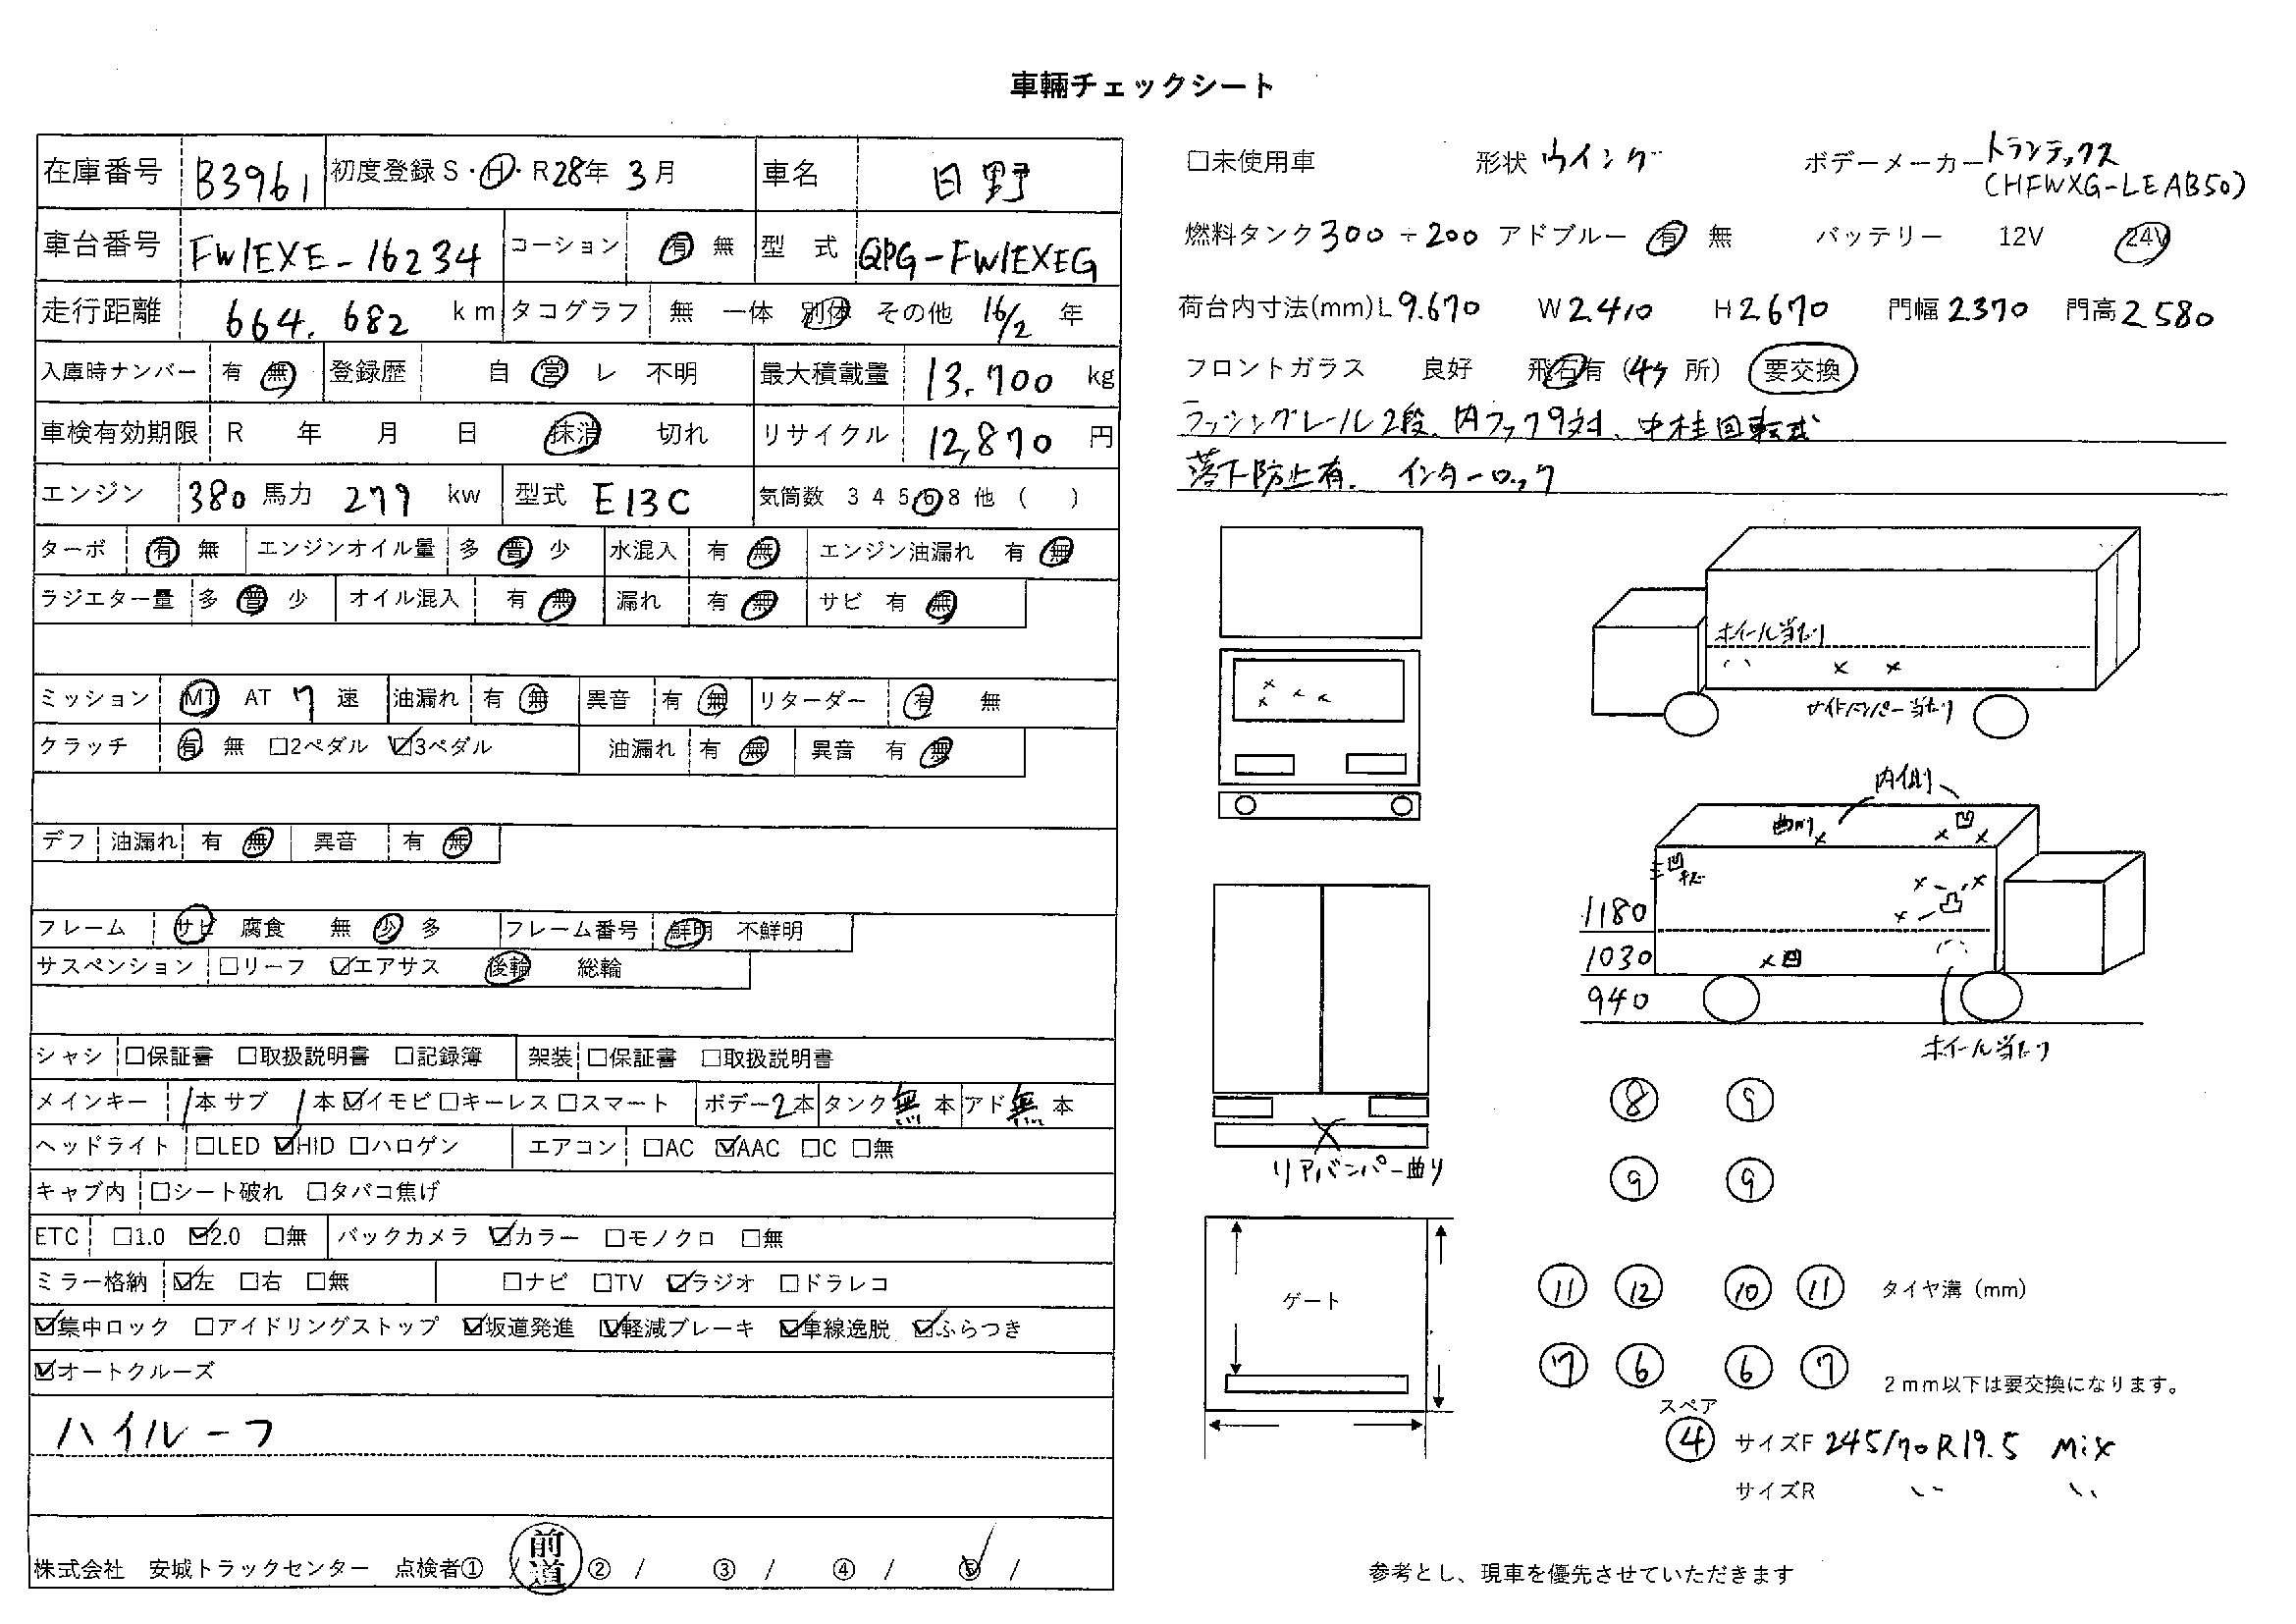 車輛チェックシート
在庫番号 B3961 初度登録 S・H・R 28年 3月 車名 日野
車台番号 FW1EXE-16234 コーション 有 無 型 式 QPG-FW1EXEG
走行距離 664.682 km タコグラフ 無 一体 別体 その他 16/2 年
入庫時ナンバー 有 無 登録歴 自 営 レ 不明 最大積載量 13.700 kg
車検有効期限 R 年 月 日 抹消 切れ リサイクル 12,870 円
エンジン 380 馬力 279 kw 型式 E13C 気筒数 3 4 5 6 8 他 ( )
ターボ 有 無 エンジンオイル量 多 普 少 水混入 有 無 エンジン油漏れ 有 無
ラジエター量 多 普 少 オイル混入 有 無 漏れ 有 無 サビ 有 無
ミッション MT AT 7 速 油漏れ 有 無 異音 有 無 リターダー 有 無
クラッチ 有 無 □2ペダル ☑3ペダル 油漏れ 有 無 異音 有 無
デフ 油漏れ 有 無 異音 有 無
フレーム サビ 腐食 無 少 多 フレーム番号 鮮明 不鮮明
サスペンション □リーフ ☑エアサス 後輪 総輪
シャシ □保証書 □取扱説明書 □記録簿 架装 □保証書 □取扱説明書
メインキー 1本 サブ 1本 ☑イモビ □キーレス □スマート ボデー2本 タンク無本 アド無本
ヘッドライト □LED ☑HID □ハロゲン エアコン □AC ☑AAC □C □無
キャブ内 □シート破れ □タバコ焦げ
ETC □1.0 ☑2.0 □無 バックカメラ ☑カラー □モノクロ □無
ミラー格納 ☑左 □右 □無 □ナビ □TV ☑ラジオ □ドラレコ
☑集中ロック □アイドリングストップ ☑坂道発進 ☑軽減ブレーキ ☑車線逸脱 ☑ふらつき
☑オートクルーズ
ハイルーフ
株式会社 安城トラックセンター 点検者① / 前道 ② / ③ / ④ / ⑤ /
□未使用車 形状 ウイング ボデーメーカー トランテックス
(HFWXG-LEAB50)
燃料タンク 300 + 200 アドブルー 有 無 バッテリー 12V 24V
荷台内寸法(mm) L 9.670 W 2.410 H 2670 門幅 2370 門高 2580
フロントガラス 良好 飛石有 (4ケ 所) 要交換
ラッシングレール2段、内フック9対、中柱回転式
落下防止有. インターロック
ホイール当たり
サイドバンパー当たり
内側
曲がり 凹
凹
キズ
凸
1180
1030
凹
940
ホイール当たり
リアバンパー曲り
8 9
9 9
ゲート
11 12 10 11 タイヤ溝(mm)
7 6 6 7
2mm以下は要交換になります。
スペア
4 サイズF 245/70R19.5 Mix
サイズR 〃 〃
参考とし、現車を優先させていただきます